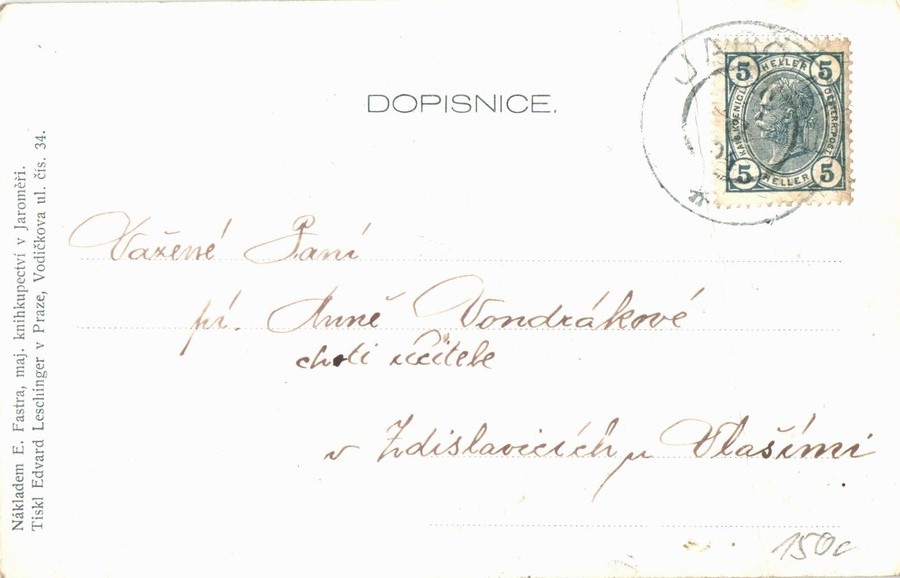 DOPISNICE.
5 HELLER 5
KAIS. KOENIGL. OESTERR. POST.
5 HELLER 5
Vážené Paní
pí. Anně Vondrákové
choti učitele
v Zdislavicích u Vlašimi
150,-
Nákladem E. Fastra, maj. knihkupectví v Jaroměři.
Tiskl Edvard Leschinger v Praze, Vodičkova ul. čís. 34.